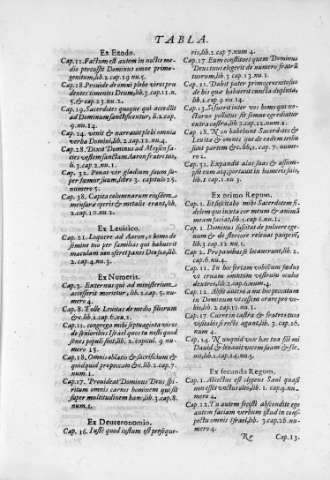 TABLA.
Ex Exodo.
Cap. 11. Factum est autem in noctis me-
dio percussit Dominus omne primo-
genitum, lib. 2. cap. 19. nu. 5.
Cap. 18. Provide de omni plebe viros po-
tentes timentes Deum, lib. 3. cap.
Cap. 19. Sacerdotes quoque qui accedunt
ad Dominum sanctificentur, li. 2. cap.
9. nu. 14.
Cap. 24. venit & narravit plebi omnia
verba Domini, lib. 2. cap. 12. nu. 4.
Cap. 28. Dixit Dominus ad Moysen fa-
cies vestem sanctam Aaron fratri tuo,
lib. 3. cap. 31. nu. 1.
Cap. 32. Ponat vir gladium suum su-
per femur suum, libro 3. capitulo 25.
numero 5.
Cap. 38. Capita columnarum
opere & metalli erant, lib.
2. cap. 10. nu. 2.
Ex Levitico.
Cap. 21. Loquere ad Aaron, homo de
semine tuo per familias qui habuerit
maculam non offeret panes Deo suo, lib.
2. cap. 4. nu. 3.
Ex Numeris.
Cap. 3. Externus qui ad ministerium
accesserit morietur, lib. 2. cap. 5. nu-
mero 4.
Cap. 8. Tolle Levitas de medio filiorum
&c. lib. 2. cap. 6. nu. 1.
Cap. 11. congrega mihi septuaginta viros
de senioribus Israel quos tu nosti quod
senes populi sint, lib. 2. capitul. 9. nu-
mero 13.
Cap. 18. Omnis oblatio & sacrificium &
quidquid pro peccato &c. lib. 2. cap. 7.
num. 1.
Cap. 27. Provideat Dominus Deus spi-
rituum omnis carnis hominem qui sit
super multitudinem hanc, lib. 3. cap. 8.
num. 1.
Ex Deuteronomio.
Cap. 16. Iuste quod iustum est perseque-
ris, lib. 2. cap. 7. num. 4.
Cap. 17. Eum constitues quem Dominus
Deus tuus elegerit de numero fratrum
tuorum, lib. 3. cap. 13. nu. 1.
Cap. 21. Dabit pater primogenito suo
de his quae habuerit cuncta duplicia,
lib. 1. cap. 9. nu. 14.
Cap. 23. Si fuerit inter vos homo qui no-
cturno pollutus sit somnio egredietur
extra castra, lib. 2. cap. 22. num. 2.
Cap. 18. Non habebunt Sacerdotes &
Levitae & omnes qui de eadem tribu
sunt partem &c. lib. 2. cap. 7. nume-
ro 1.
Cap. 32. Expandit alas suas & assum-
psit eum atque portavit in humeris suis,
lib. 1. cap. 1. nu. 3.
Ex primo Regum.
Cap. 2. Et suscitabo mihi Sacerdotem fi-
delem qui iuxta cor meum & animam
meam faciat, lib. 2. cap. 6. nu. 1.
Cap. 2. Dominus suscitat de pulvere ege-
num & de stercore elevat pauperem,
lib. 3. cap. 12. nu. 1.
cap. 6. nu. 4.
Cap. 11. In hoc feriam vobiscum foedus
ut eruam omnium vestrum oculos
dextros, lib. 2. cap. 6. num. 4.
Cap. 12. Absit autem a me hoc peccatum
in Dominum ut cessem orare pro vo-
bis, lib. 2. cap. 17. nu. 1.
Cap. 17. Curre in castra & fratres tuos
visitabis si recte agant, lib. 3. cap. 26.
num. 4.
nu. 14.
Ex secundo Regum.
Cap. 1. Abiectus est clypeus Saul quasi
non esset unctus oleo, lib. 1. cap. 9. nu-
mero 4.
Cap. 12. Tu autem fecisti abscondite ego
autem faciam verbum istud in cons-
pectu omnis Israel, lib. 3. cap. 26. nu-
mero 4.
Cap. 13.